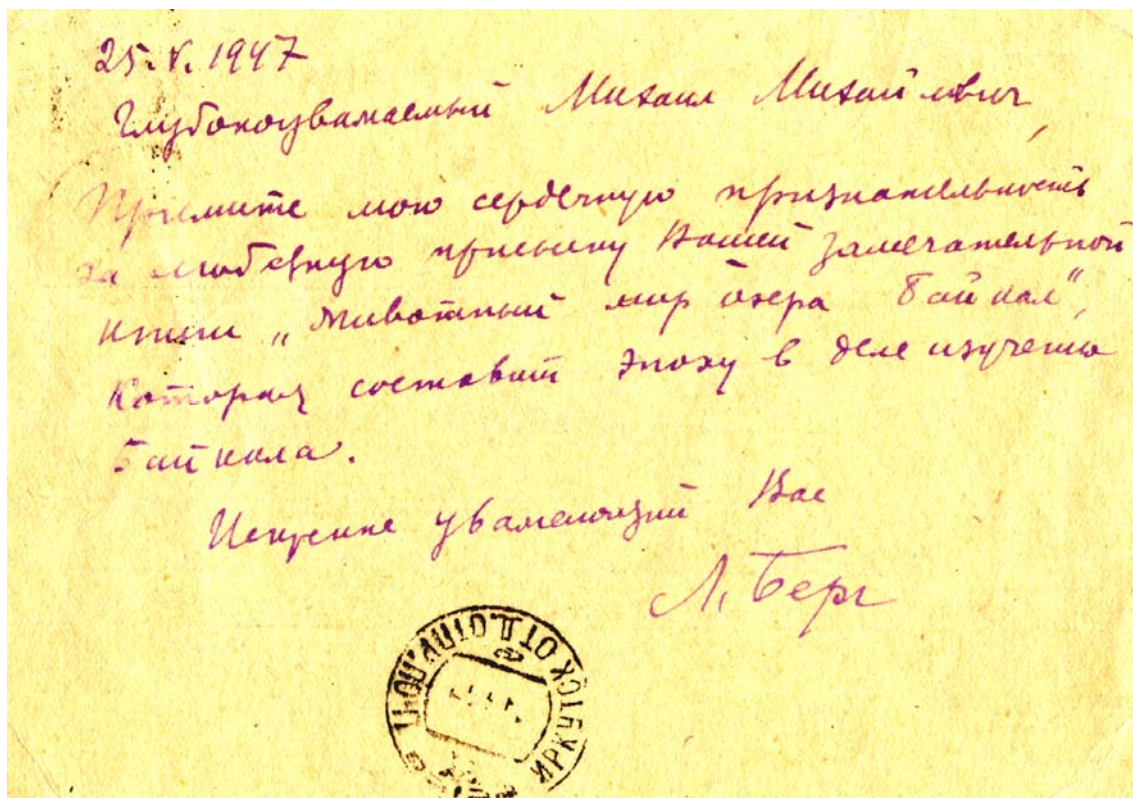 25.V.1947
Глубокоуважаемый Михаил Михайлович,
Примите мою сердечную признательность
за любезную присылку Вашей замечательной
книги „Животный мир озера Байкал“,
которая составит эпоху в деле изучения
Байкала.
Искренне уважающий Вас
Л. Берг
ИРКУТСК ОТД. ОТПР. ПОЧТ